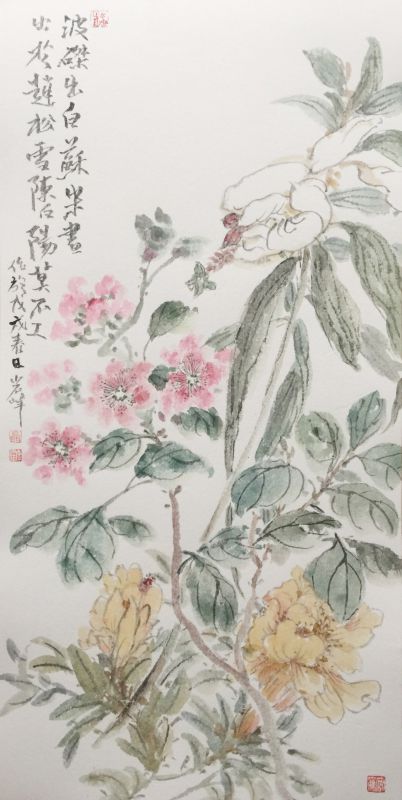 波磔出自蘇米畫
出於趙松雪陳白陽莫不工
作於戊戌春日